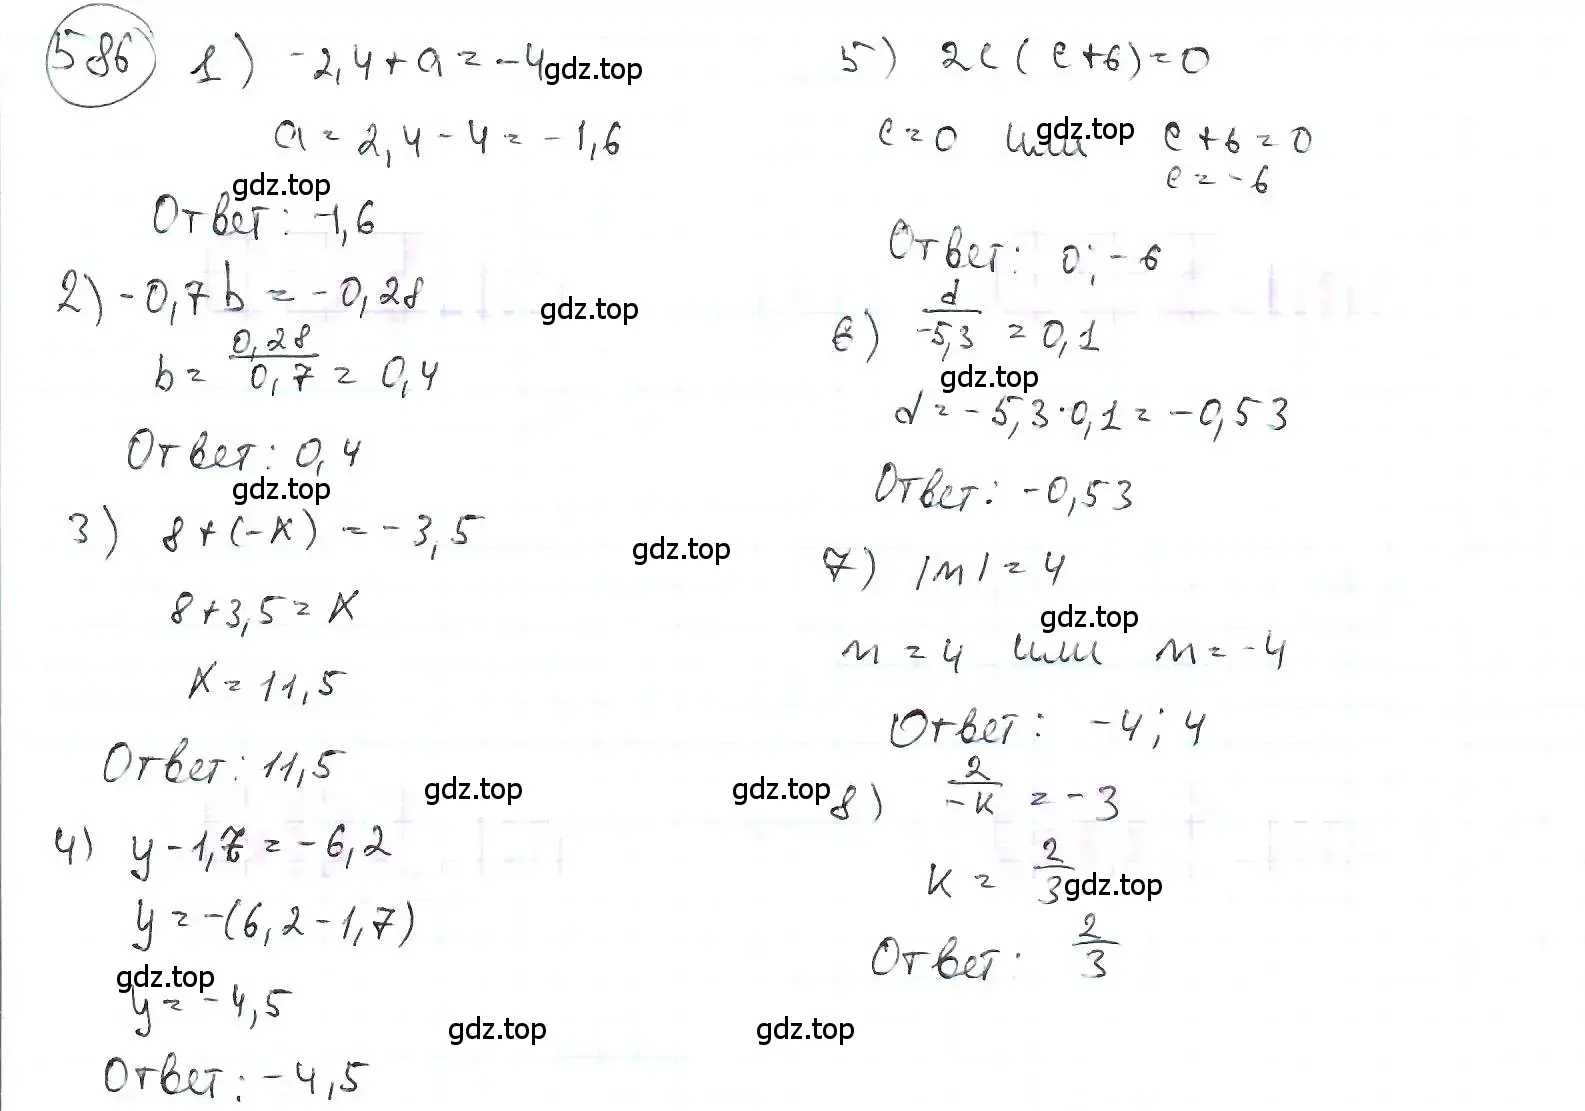 586 1) -2,4 + a = -4
a = 2,4 - 4 = -1,6
Ответ: -1,6
2) -0,7b = -0,28
b = 0,28/0,7 = 0,4
Ответ: 0,4
3) 8 + (-x) = -3,5
8 + 3,5 = x
x = 11,5
Ответ: 11,5
4) y - 1,7 = -6,2
y = -(6,2 - 1,7)
y = -4,5
Ответ: -4,5
5) 2c(c+6) = 0
c = 0 или c + 6 = 0
c = -6
Ответ: 0; -6
6) d/-5,3 = 0,1
d = -5,3 · 0,1 = -0,53
Ответ: -0,53
7) |m| = 4
m = 4 или m = -4
Ответ: -4; 4
8) 2/-k = -3
k = 2/3
Ответ: 2/3
gdz.top
gdz.top
gdz.top
gdz.top
gdz.top
gdz.top
gdz.top
gdz.top
gdz.top
gdz.top
gdz.top
gdz.top
gdz.top
gdz.top